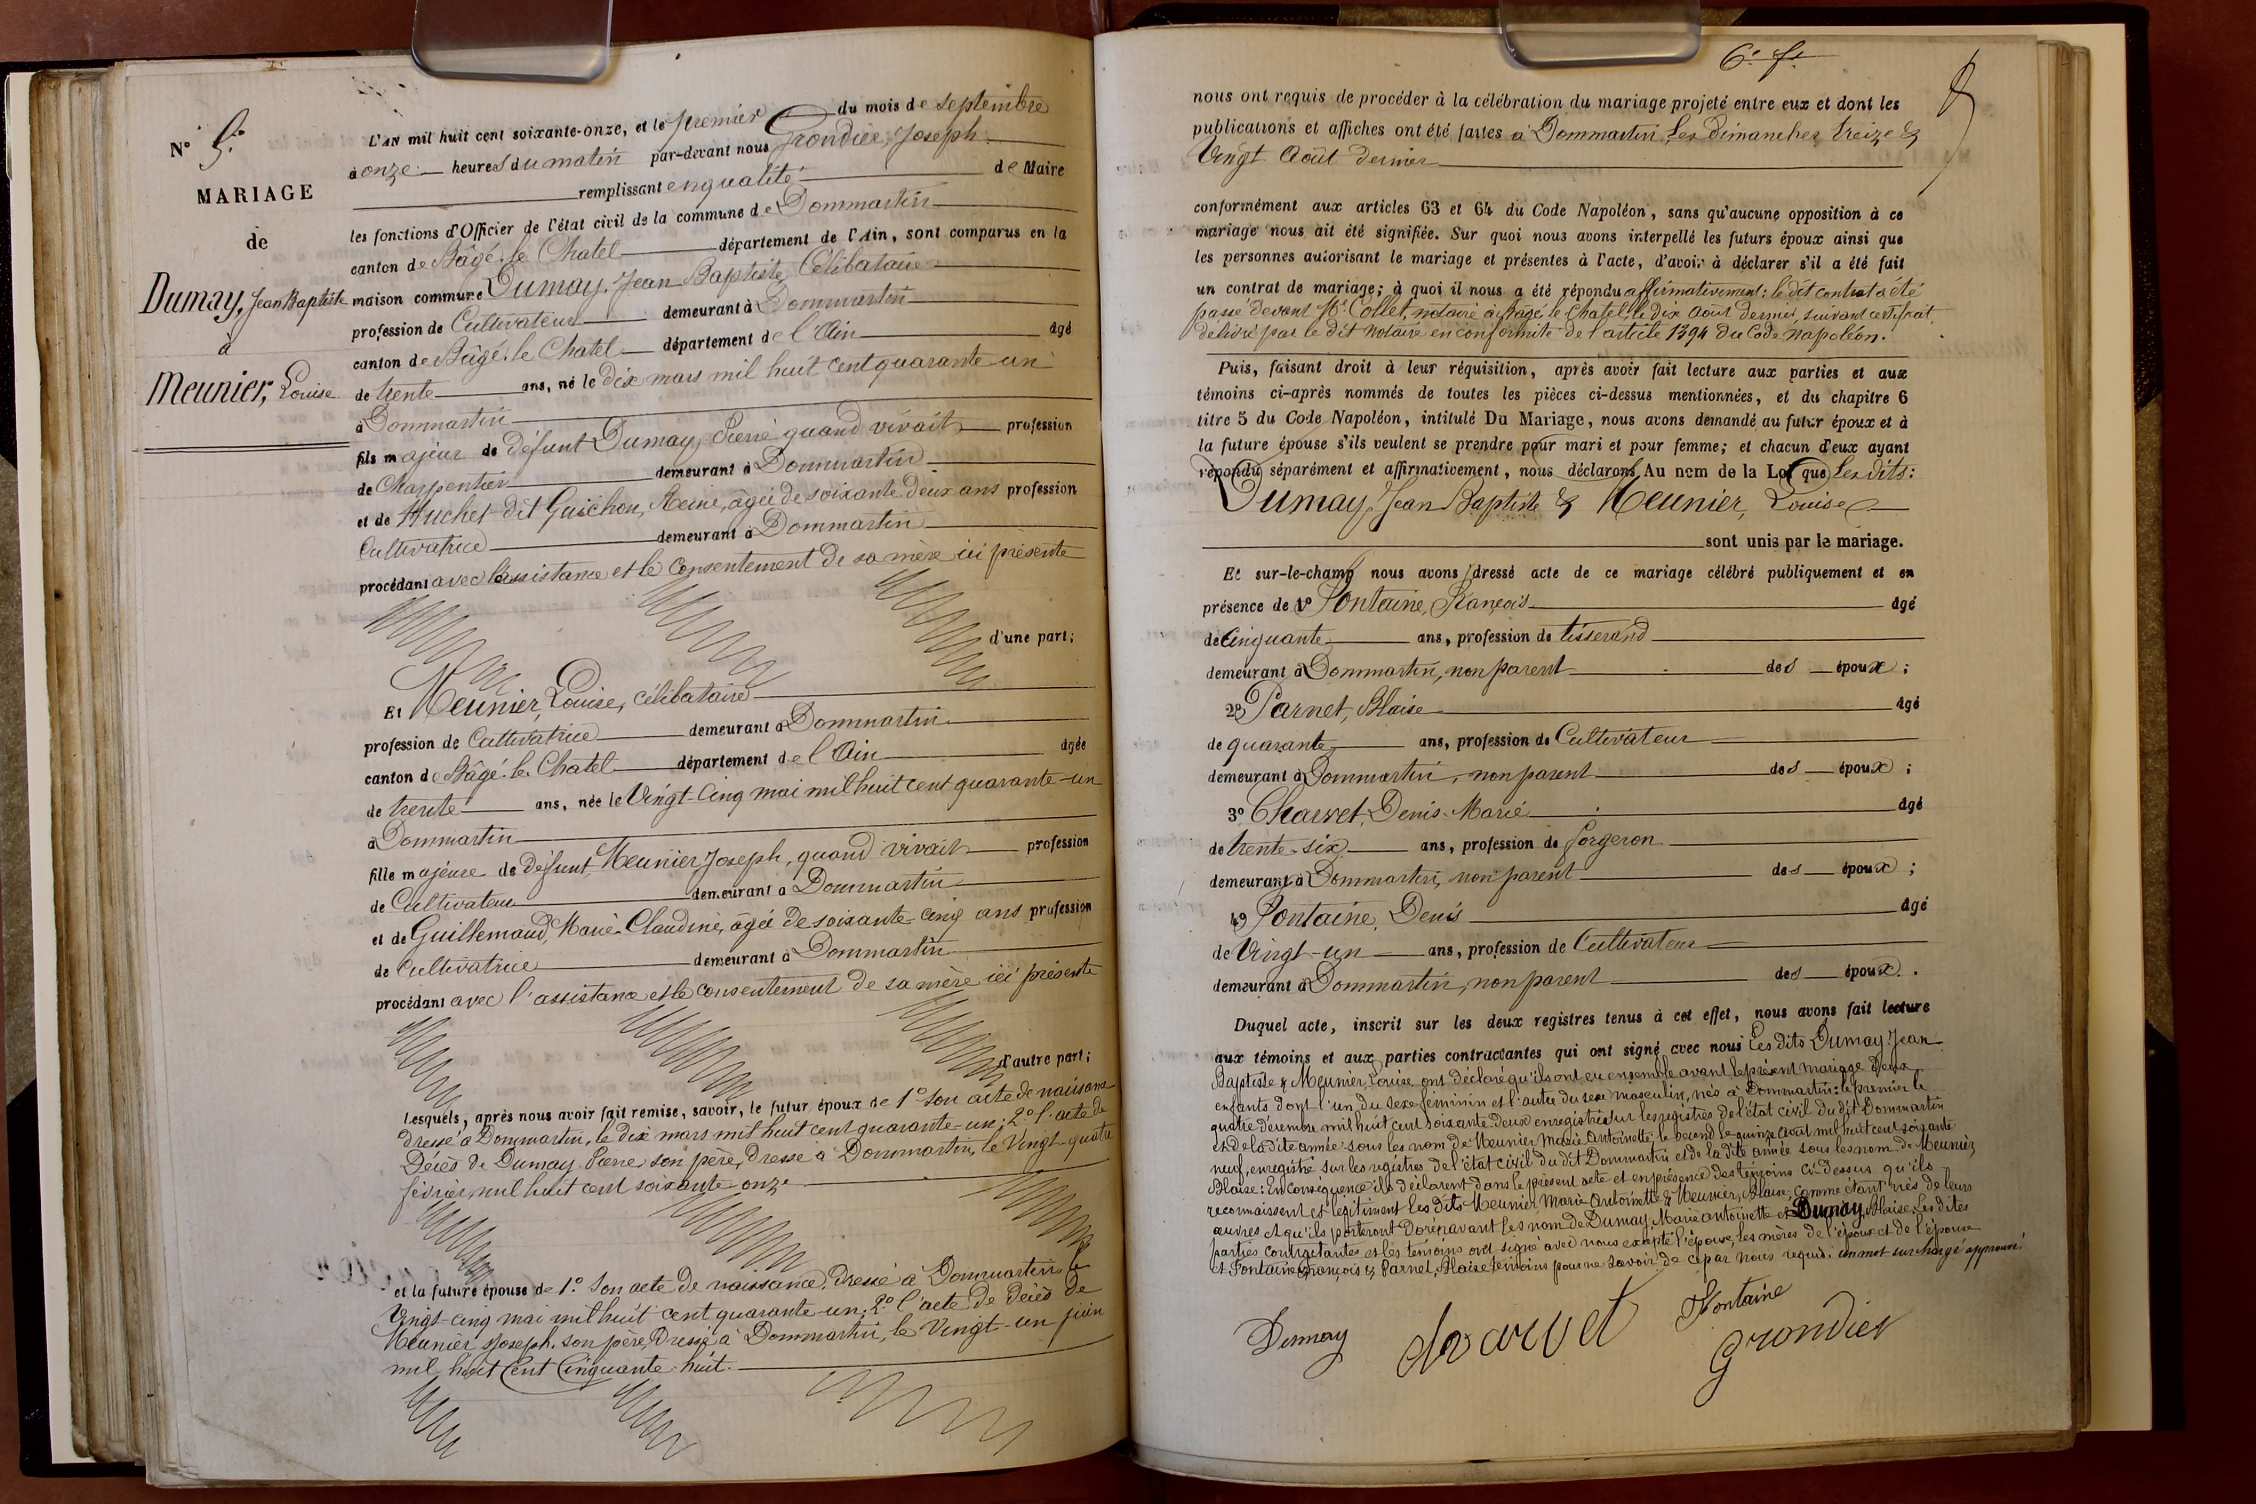 N° 5.
MARIAGE
de
Dumay, Jean Baptiste
à
Meunier, Louise
L'AN mil huit cent soixante-onze, et le premier du mois de septembre
à onze heures du matin par-devant nous Grondier, Joseph
remplissant en qualité de Maire
les fonctions d'Officier de l'état civil de la commune de Dommartin
canton de Bâgé-le Chatel département de l'Ain, sont comparus en la
maison commune Dumay, Jean Baptiste, Célibataire
profession de Cultivateur demeurant à Dommartin
canton de Bâgé-le Chatel département de l'Ain âgé
de trente ans, né le dix mars mil huit cent quarante-un
à Dommartin
fils majeur de défunt Dumay, Pierre quand vivait profession
de Charpentier demeurant à Dommartin
et de Huchet dit Guichon, Reine, âgée de soixante deux ans profession
Cultivatrice demeurant à Dommartin
procédant avec l'assistance et le consentement de sa mère ici présente
d'une part;
Et Meunier, Louise, célibataire
profession de Cultivatrice demeurant à Dommartin
canton de Bâgé-le-Chatel département de l'Ain âgée
de trente ans, née le Vingt-Cinq mai mil huit cent quarante-un
à Dommartin
fille majeure de défunt Meunier Joseph, quand vivait profession
de Cultivateur demeurant à Dommartin
et de Guillemaud, Marie-Claudine, âgée de soixante-cinq ans profession
de Cultivatrice demeurant à Dommartin
procédant avec l'assistance et le consentement de sa mère ici présente
d'autre part;
Lesquels, après nous avoir fait remise, savoir, le futur époux de 1° Son acte de naissance
dressé à Dommartin, le dix mars mil huit cent quarante-un; 2° l'acte de
Décès de Dumay Pierre son père, dressé à Dommartin, le Vingt-quatre
février mil huit cent soixante onze
et la future épouse de 1° Son acte de naissance, dressé à Dommartin le
Vingt-cinq mai mil huit cent quarante-un; 2° l'acte de Décès de
Meunier Joseph, son père, Dressé à Dommartin, le Vingt-un juin
mil huit Cent Cinquante-huit.
6e f.
nous ont requis de procéder à la célébration du mariage projeté entre eux et dont les
publications et affiches ont été faites à Dommartin, les dimanches treize &
Vingt Août dernier
conformément aux articles 63 et 64 du Code Napoléon, sans qu'aucune opposition à ce
mariage nous ait été signifiée. Sur quoi nous avons interpellé les futurs époux ainsi que
les personnes autorisant le mariage et présentes à l'acte, d'avoir à déclarer s'il a été fait
un contrat de mariage; à quoi il nous a été répondu affirmativement: le dit contrat a été
passé devant Me Collet, notaire à Bâgé-le Chatel, le dix août dernier, suivant certificat
délivré par le dit notaire en conformité de l'article 1394 du Code Napoléon.
Puis, faisant droit à leur réquisition, après avoir fait lecture aux parties et aux
témoins ci-après nommés de toutes les pièces ci-dessus mentionnées, et du chapitre 6
titre 5 du Code Napoléon, intitulé Du Mariage, nous avons demandé au futur époux et à
la future épouse s'ils veulent se prendre pour mari et pour femme; et chacun d'eux ayant
répondu séparément et affirmativement, nous déclarons, Au nom de la Loi que Les dits:
Dumay, Jean Baptiste & Meunier, Louise
sont unis par le mariage.
Et sur-le-champ nous avons dressé acte de ce mariage célébré publiquement et en
présence de 1° Fontaine, François âgé
de Cinquante ans, profession de tisserand
demeurant à Dommartin, non parent des époux;
2° Parnet, Blaise âgé
de quarante ans, profession de Cultivateur
demeurant à Dommartin, non parent des époux;
3° Charvet, Denis-Marie âgé
de trente-six ans, profession de forgeron
demeurant à Dommartin, non parent des époux;
4° Fontaine, Denis âgé
de Vingt-un ans, profession de Cultivateur
demeurant à Dommartin, non parent des époux.
Duquel acte, inscrit sur les deux registres tenus à cet effet, nous avons fait lecture
aux témoins et aux parties contractantes qui ont signé avec nous Les dits Dumay Jean
Baptiste & Meunier, Louise ont déclaré qu'ils ont eu ensemble avant le présent mariage Deux
enfants dont l'un, du sexe féminin et l'autre du sexe masculin, nés à Dommartin: le premier le
quatre décembre mil huit cent soixante-deux enregistré sur les registres de l'état civil du dit Dommartin
et de la dite année sous les nom de Meunier Marie Antoinette, le second le quinze août mil huit cent soixante
neuf, enregistré sur les registres de l'état civil du dit Dommartin et de la dite année sous les nom de Meunier
Blaise: En conséquence ils déclarent dans le présent acte et en présence des témoins ci-dessus qu'ils
reconnaissent et légitiment les dits Meunier, Marie Antoinette & Meunier, Blaise, comme étant nés de leurs
œuvres et qu'ils porteront dorénavant les nom de Dumay, Marie Antoinette et Dumay, Blaise. Les dites
parties contractantes et les témoins ont signé avec nous excepté l'épouse, les mères de l'époux et de l'épouse
et Fontaine François & Parnet, Blaise témoins pour ne savoir de ce par nous requis. un mot surchargé approuvé.
Dumay Charvet Fontaine
Grondier